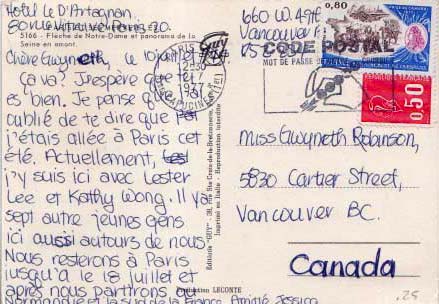 Hôtel Le D'Artagnan
80 Paris 20.
5166 - Flèche de Notre-Dame et panorama de la
Seine en amont.
Chère Gwyneth, le 10 juillet
Ça va? J'espère que tu
es bien. Je pense que j'ai
oublié de te dire que
j'étais allée à Paris cet
été. Actuellement,
j'y suis ici avec Lester
Lee et Kathy Wong. Il y a
sept autre jeunes gens
ici aussi autours de nous
Nous resterons à Paris
jusqu'a le 18 juillet et
après nous partirons
Normandie et la sud de la France. Amitié Jessica
Production LECONTE
Editions "GUY" - Ste Croix-de-la-Bretonnerie,
Reproduction interdite
PARIS
CAPUCINES
660 W. 49th
Vancouver
0,80
CODE POSTAL
MOT DE PASSE
0,50
Miss Gwyneth Robinson,
5830 Cartier Street,
Vancouver BC.
Canada
.25